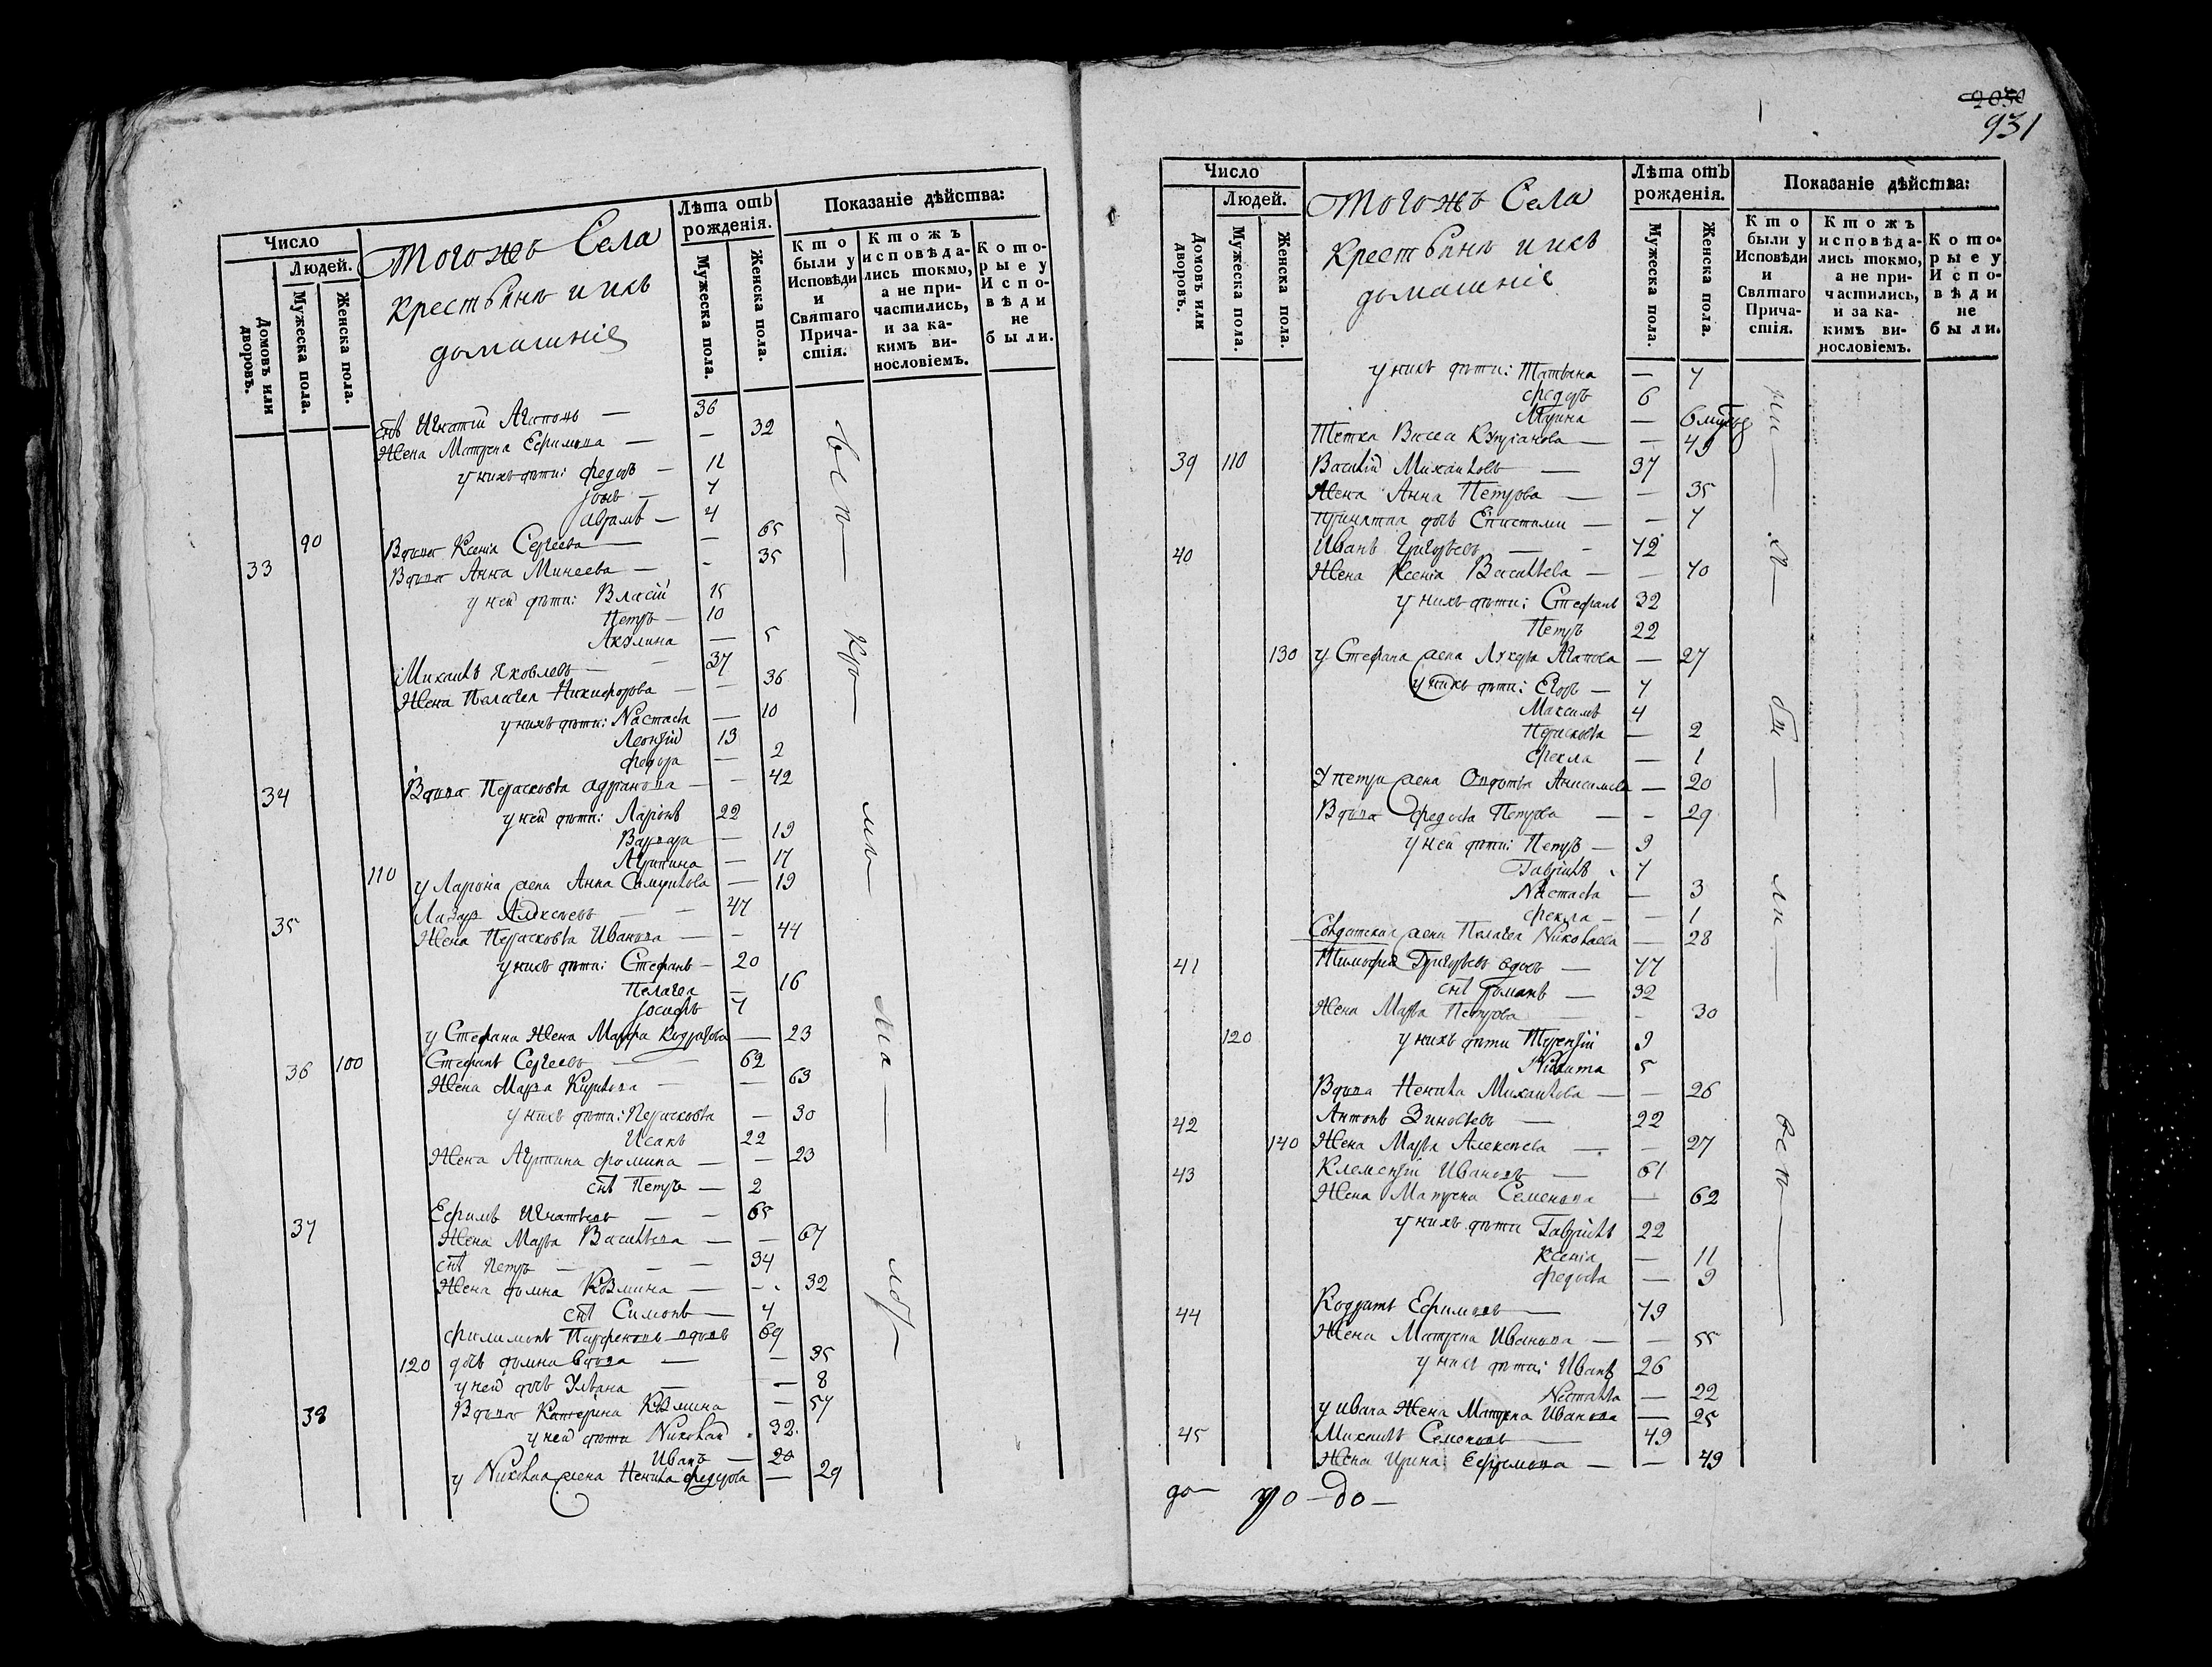 Число
Людей.
Домовъ или дворовъ.
Мужеска пола.
Женска пола.
Тогожъ Села
крестьянъ и ихъ
домашнiе
Лѣта отъ рожденiя.
Мужеска пола.
Женска пола.
Показанiе дѣйства:
Кто были у Исповѣди и Святаго Причастiя.
Ктожъ исповѣдались токмо, а не причастились, и за какимъ винословiемъ.
Которые у Исповѣди не были.
снъ Игнатiй Агаповъ — 36
Жена Матрена Ефимова — — 32
у нихъ дѣти: Федоръ — 12
7
Аврамъ — 4
90 Вдова Ксенiя Сергеева — 65
33 Вдова Анна Минеева — - 35
у ней дѣти: Власiй 15
Петръ — 10
Акулина — 5
Михаилъ Яковлевъ — 37
Жена Пелагея Никифорова — — 36
у нихъ дѣти: Nастасья — 10
Леонтiй 13
Федора — 2
34 Вдова Перасковья Адрiанова — - 42
у ней дѣти: Ларiонъ 22
Варвара — 19
Агрипина — 17
110 у Ларiона жена Анна Самуилова — 19
35 Лазарь Алексѣевъ — 47
Жена Перасковья Иванова — - 44
у нихъ дѣти: Стефанъ — 20
Пелагея — 16
Iосифъ 7
у Стефана Жена Марфа — 23
36 100 Стефанъ Сергеевъ — 62
Жена Марья Кирилова — — 63
у нихъ дѣти: Перасковья — 30
Исакъ 22
Жена Агрипина Фомина — — 23
снъ Петръ — 2
37 Ефимъ Игнатьевъ — 65
Жена Марья Васильева — — 67
снъ Петръ — 34
Жена Домна Козмина — - 32
снъ Симонъ — 4
Филимонъ Парфеновъ вдовъ 69
120 дочь Домна вдова — — 35
у ней дочь Ульяна — — 8
38 Вдова Катерина Козмина — 57
у ней дѣти Nиколай 32
Иванъ — 20
у Nиколая жена Ненила Федорова — 29
2030
931
Число
Людей.
Домовъ или дворовъ.
Мужеска пола.
Женска пола.
Тогожъ Села
крестьянъ и ихъ
домашнiе
Лѣта отъ рожденiя.
Мужеска пола.
Женска пола.
Показанiе дѣйства:
Кто были у Исповѣди и Святаго Причастiя.
Ктожъ исповѣдались токмо, а не причастились, и за какимъ винословiемъ.
Которые у Исповѣди не были.
у нихъ дѣти: Татьяна — 7
Федоръ 6
— 6
Тетка Васса — — 49
39 110 Василiй Михаиловъ — 37
Жена Анна Петрова — — 35
прiнятая дочь Епистимия — — 7
40 Иванъ Григорьевъ — - 72
Жена Ксенiя Васильева — — 70
у нихъ дѣти: Стефанъ 32
Петръ 22
130 у Стефана жена Лукерья Агапова — 27
у нихъ дѣти: Егоръ — 7
Максимъ 4
Перасковья — 2
Фекла — 1
У Петра жена Авдотья Анисимова — 20
Вдова Федосья Петрова — - 29
у ней дѣти: Петръ — 9
Гаврiилъ 7
Nастасья — 3
Фекла — — 1
Солдатская жена Пелагея Nиколаева — 28
41 Тимофей Григорьевъ вдовъ — 77
снъ Романъ — 32
Жена Марья Петрова - 30
120 у нихъ дѣти Терентiй 9
Nикита 5
Вдова Ненила Михаилова — — 26
42 Антонъ Зиновьевъ — 22
140 Жена Марья Алексѣева — — 27
43 Клементiй Ивановъ — 61
Жена Матрена Семенова — 62
у нихъ дѣти Гаврiилъ 22
Ксенiя — 11
Федосья — 9
44 Кодратъ Ефимовъ — 49
Жена Матрена Иванова — — 55
у нихъ дѣти: Иванъ 26
Nаталья — 22
у Ивана Жена Матрена Иванова — 25
45 Михаилъ Семеновъ — 49
Жена Ирина Ефремова — — 49
до — до —